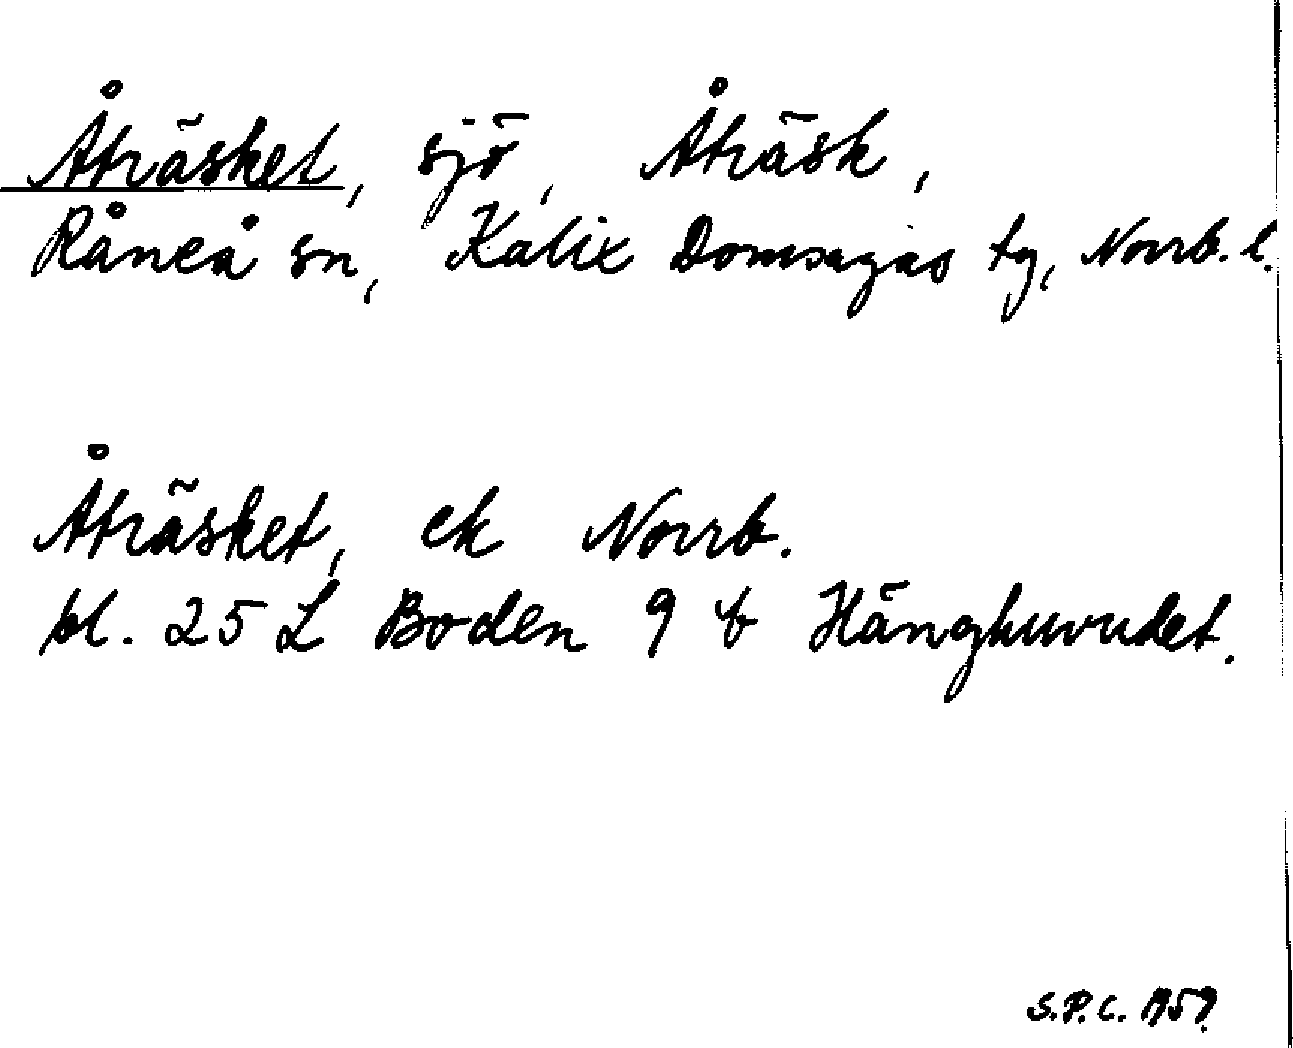 Åträsket, sjö, Åträsk,
Råneå sn, Kalix Domsagas tg, Norrb. l.
Åträsket, ek Norrb.
bl. 25 L Boden 9 b Hänghuvudet.
S.P.C. 1959.